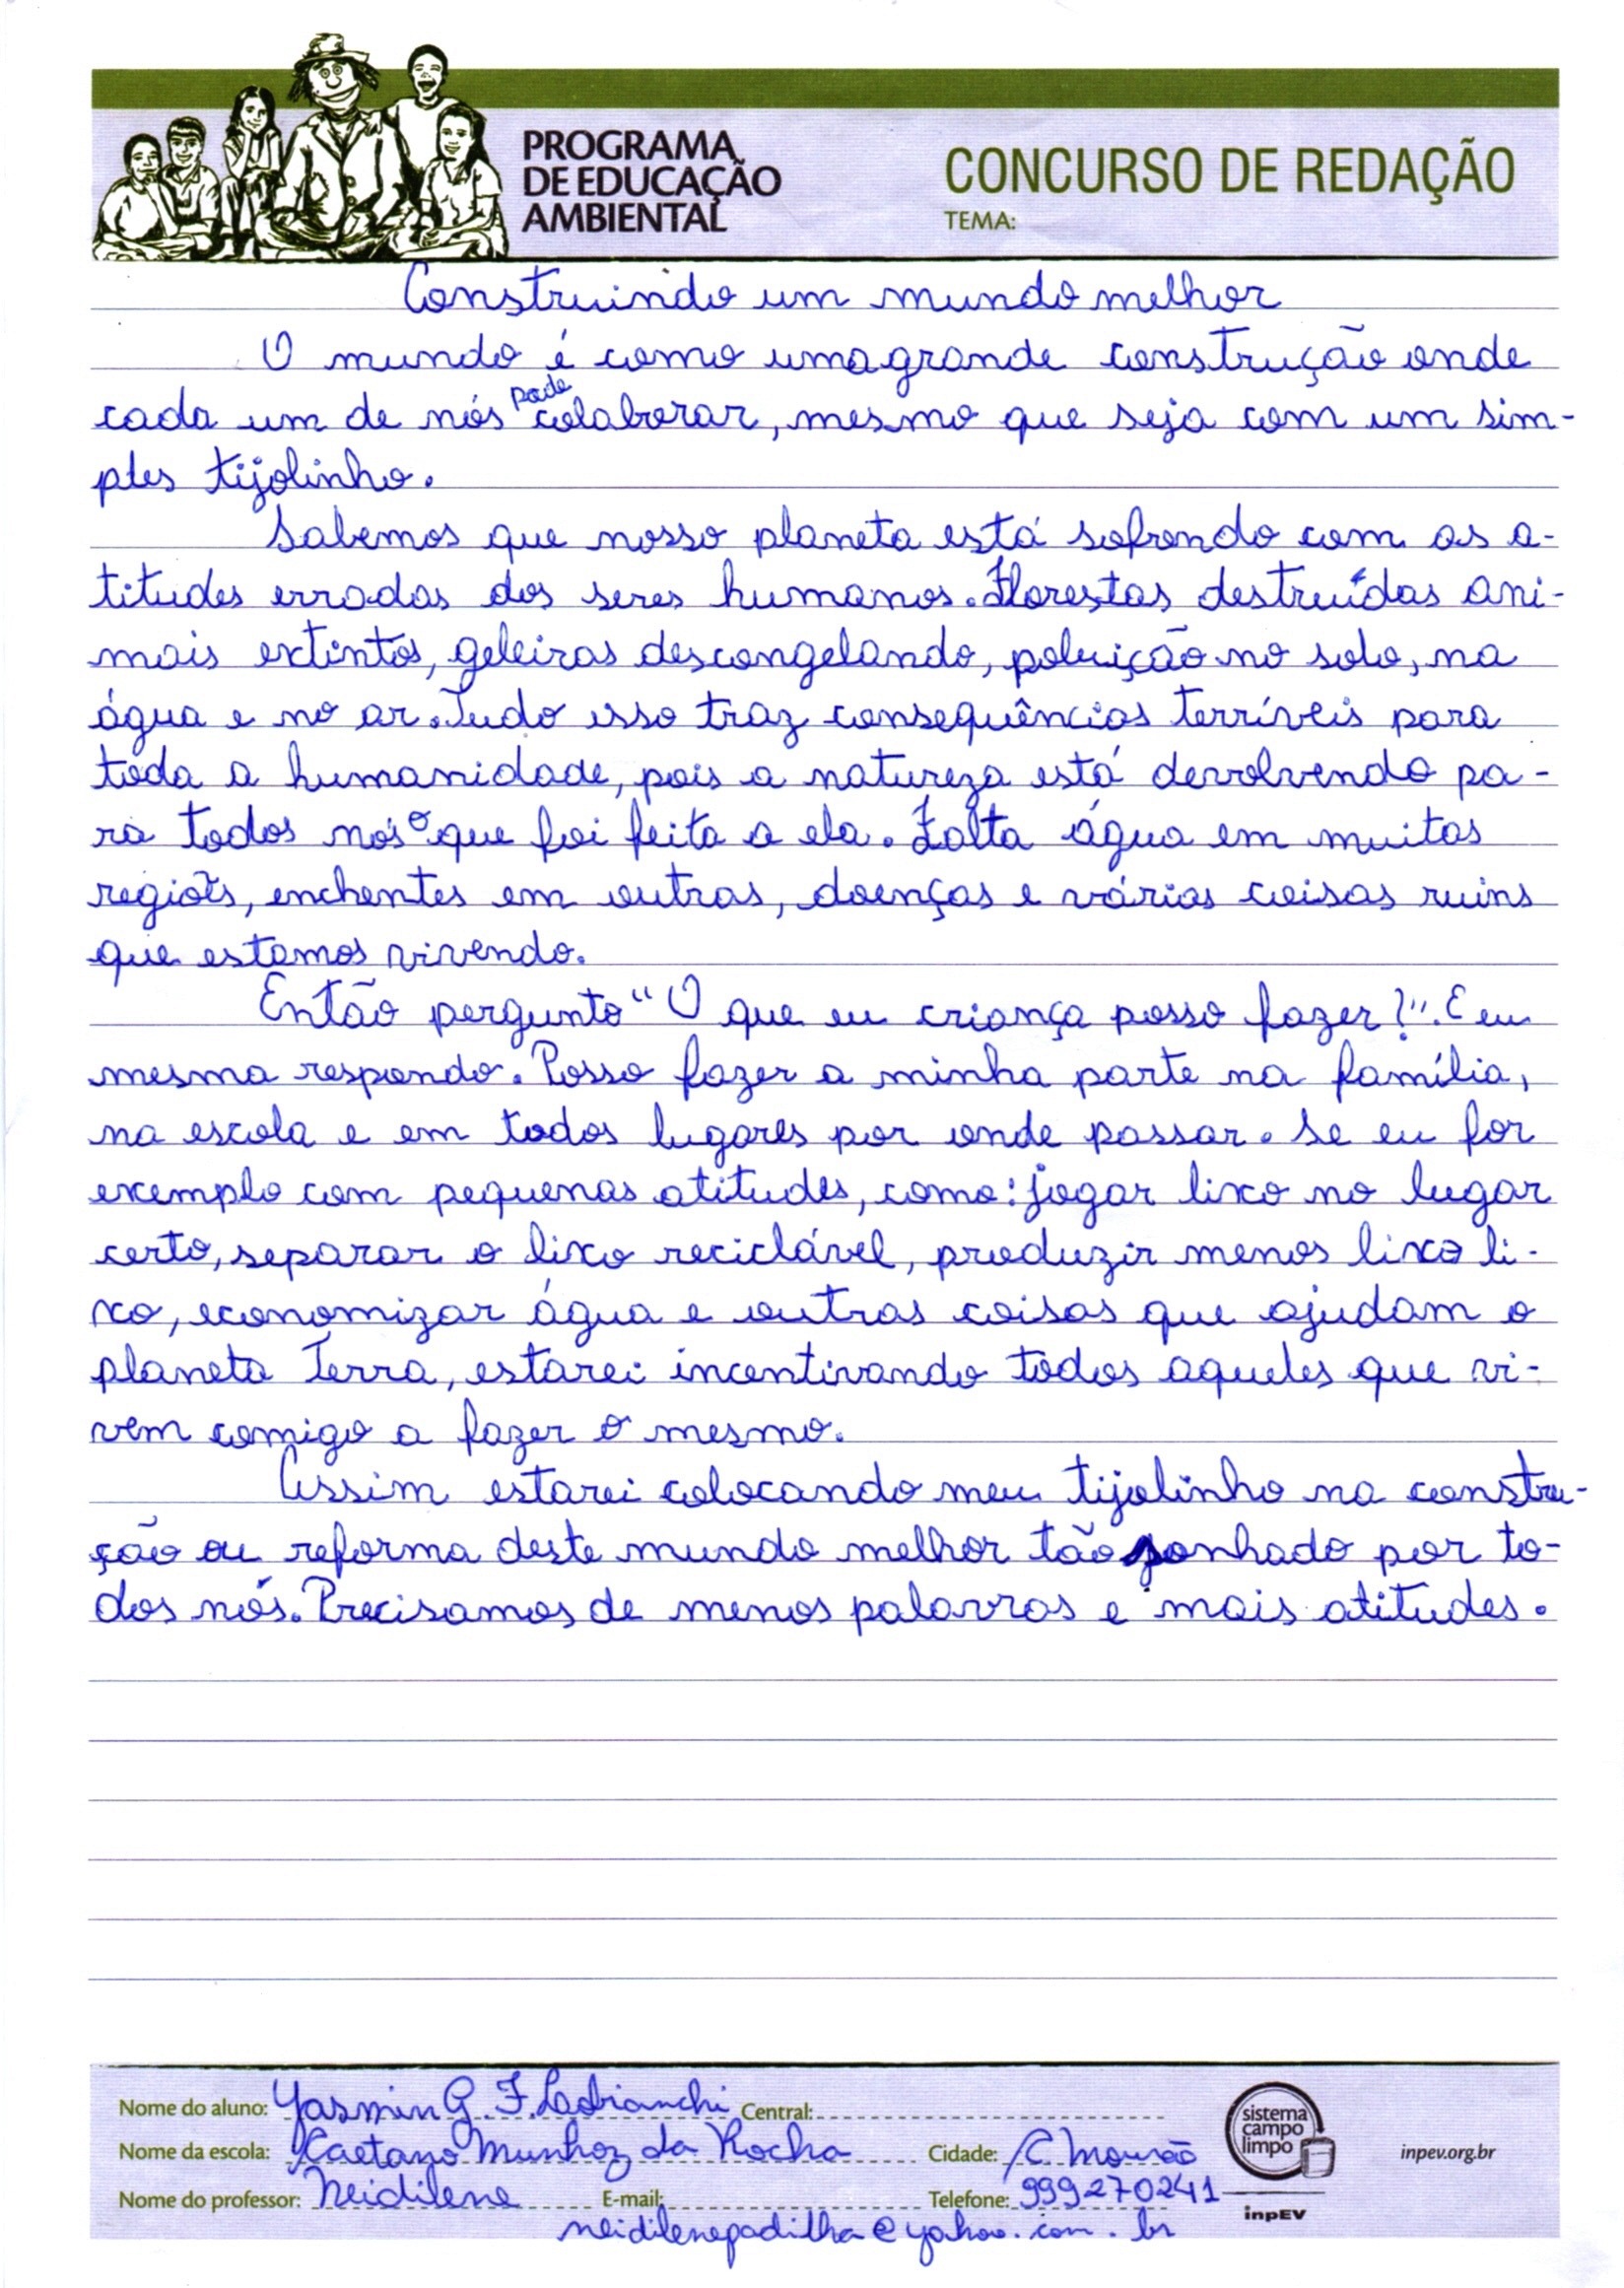 PROGRAMA
DE EDUCAÇÃO
AMBIENTAL
CONCURSO DE REDAÇÃO
TEMA:
Construindo um mundo melhor
O mundo é como uma grande construção onde
cada um de nós pode colaborar, mesmo que seja com um sim-
ples tijolinho.
Sabemos que nosso planeta está sofrendo com as a-
titudes erradas dos seres humanos. Florestas destruídas ani-
mais extintos, geleiras descongelando, poluição no solo, na
água e no ar. Tudo isso traz consequências terríveis para
toda a humanidade, pois a natureza está devolvendo pa-
ra todos nós o que foi feita a ela. Falta água em muitas
regiões, enchentes em outras, doenças e várias coisas ruins
que estamos vivendo.
Então pergunto "O que eu criança posso fazer?". E eu
mesma respondo. Posso fazer a minha parte na família,
na escola e em todos lugares por onde passar. Se eu for
exemplo com pequenas atitudes, como: jogar lixo no lugar
certo, separar o lixo reciclável, produzir menos lixo li-
xo, economizar água e outras coisas que ajudam o
planeta Terra, estarei incentivando todos aqueles que vi-
vem comigo a fazer o mesmo.
Assim estarei colocando meu tijolinho na constru-
ção ou reforma deste mundo melhor tão sonhado por to-
dos nós. Precisamos de menos palavras e mais atitudes.
Nome do aluno: Yasmin G. F. Central:
Nome da escola: Caetano Munhoz da Rocha Cidade: C. Mourão
Nome do professor: Neidilene E-mail: Telefone: 999270241
neidilenepadilha@yahoo.com.br
sistema
campo
limpo
inpEV
inpev.org.br